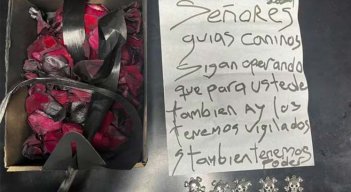 Señores
guias caninos
sigan operando
que para ustede
tambien ay los
tenemos vigilados
tambien tenemos
poder